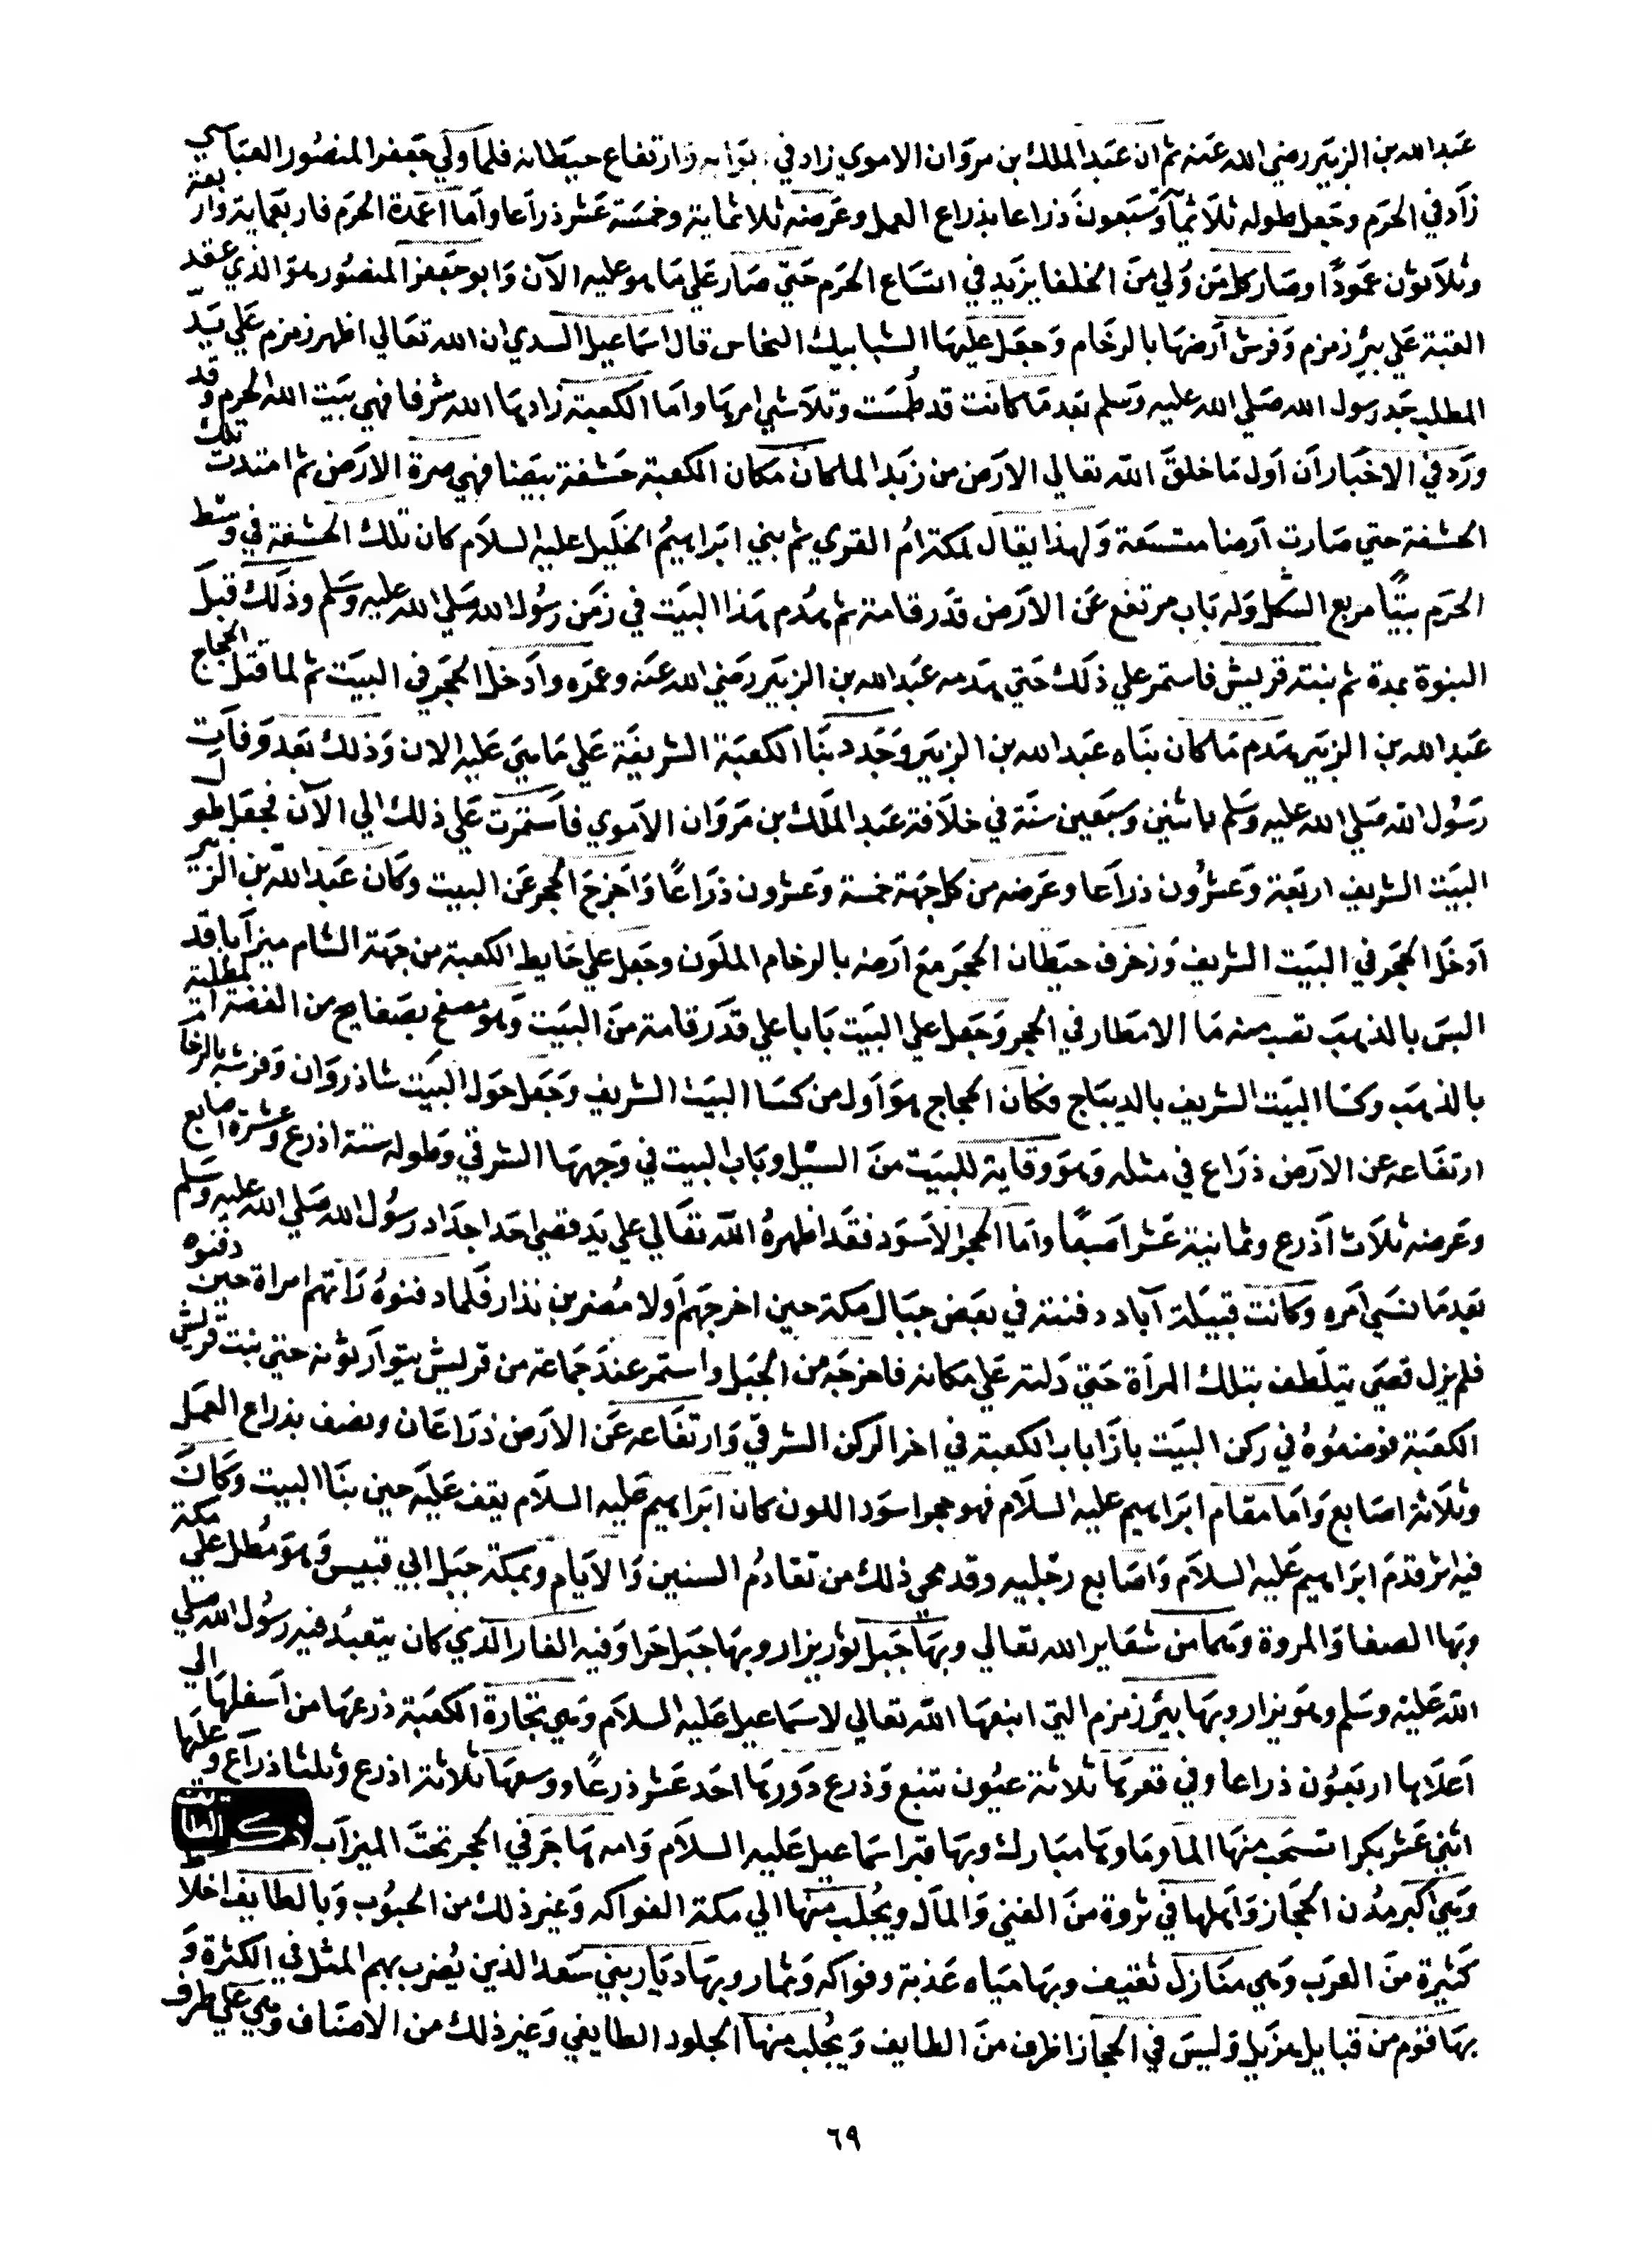 عبدالله بن الزبير رضي الله عنه ثم ان عبد الملك بن مروان الاموي زاد في وارتفاع حيطانه فلما ولي جعفر المنصور العباسي
زاد في الحرم وجعل طوله ثلاثمآ وسبعون ذراعا بذراع العمل وعرضه ثلاثماية وخمسة عشر ذراعا واما اعمدة الحرم فاربعماية واربعة
وثلاثون عمودًا وصار كل من ولي من الخلفا يزيد في اتساع الحرم حتي صار علي ما هو عليه الآن وابو جعفر المنصور هو الذي عقد
القبة علي بئر زمزم وفرش ارضها بالرخام وجعل عليها الشبابيك النحاس قال اسماعيل السدي ان الله تعالي اظهر زمزم علي يد
المطلب جد رسول الله صلي الله عليه وسلم بعد ما كانت قد طمست وتلاشي امرها واما الكعبة زادها الله شرفا فهي بيت الله الحرم وقد
ورد في الاخبار ان اول ما خلق الله تعالي الارض من زبد الما كان مكان الكعبة حشفة بيضا فهي صرة الارض ثم امتدت تلك
الحشفة حتي صارت ارضا متسعة ولهذا يقال لمكة ام القري ثم بني ابراهيم الخليل عليه السلام كان تلك الحشفة في وسط
الحرم بيتًا مربع الشكل وله باب مرتفع عن الارض قدر قامة ثم هدم هذا البيت في زمن رسول الله صلي الله عليه وسلم وذلك قبل
النبوة بمدة ثم بنته قريش فاستمر علي ذلك حتي هدمه عبد الله بن الزبير رضي الله عنه وعمره وادخل الحجر في البيت ثم لما قتل الحجاج
عبد الله بن الزبير هدم ما كان بناه عبد الله بن الزبير وجدد بنا الكعبة الشريفة علي ما هي عليه الان وذلك بعد وفات
رسول الله صلي الله عليه وسلم باثنين وسبعين سنة في خلافة عبد الملك بن مروان الاموي فاستمرت علي ذلك الي الآن فجعل طول
البيت الشريف اربعة وعشرون ذراعا وعرضه من كل جهة خمسة وعشرون ذراعًا واخرج الحجر عن البيت وكان عبد الله بن الزبير
ادخل الحجر في البيت الشريف وزخرف حيطان الحجر مع ارضه بالرخام الملون وجعل علي حايط الكعبة من جهة الشام ميزابا قد
البس بالذهب تصب منه ما الامطار في الحجر وجعل علي البيت بابا علي قدر قامة من البيت وهو مصفح بصفايح من الفضة المطلية
بالذهب وكسا البيت الشريف بالديباج فكان الحجاج هو اول من كسا البيت الشريف وجعل حول البيت شاذروان وفرشه بالرخا
ارتفاعه عن الارض ذراع في مثله وهو وقاية للبيت من السيل وباب البيت في وجهها الشرقي وطوله ستة اذرع وعشرة اصابع
وعرضه ثلاث اذرع وثمانية عشر اصبعًا واما الحجر الاسود فقد اظهره الله تعالي علي يد قصي احد اجداد رسول الله صلي الله عليه وسلم
بعد ما نسي امره وكانت قبيلة آباد دفنته في بعض جبال مكة حين اخرجهم اولا مضر بن نذار فلما دفنوه راتهم امراة حين دفنوه
فلم يزل قصي يتلطف بتلك المراة حتي دلته علي مكانه فاخرجه من الجبل واستمر عند جماعة من قريش يتوارثونه حتي بنت قريش
الكعبة فوضعوه في ركن البيت بازا باب الكعبة في اخر الركن الشرقي وارتفاعه عن الارض ذراعان ونصف بذراع العمل
وثلاثة اصابع واما مقام ابراهيم عليه السلام فهو حجر اسود اللون كان ابراهيم عليه السلام يقف عليه حين بنا البيت وكان
فيه اثر قدم ابراهيم عليه السلام واصابع رجليه وقد محي ذلك من تقادم السنين والايام وبمكة جبل ابي قبيس وهو مطل علي مكة
وبها الصفا والمروة وهما من شعاير الله تعالي وبها جبل ثور يزار وبها جبل حرا وفيه الغار الذي كان يتعبد فيه رسول الله صلي
الله عليه وسلم وهو يزار وبها بئر زمزم التي انبعها الله تعالي لاسماعيل عليه السلام وهي تجارة الكعبة ذرعها من اسفلها الي
اعلاها اربعون ذراعا وفي قعرها ثلاثة عيون تنبع وذرع دورها احد عشر ذرعًا ووسعها ثلاثة اذرع وثلثا ذراع وعليها
اثني عشر بكرا تسحب منها الما وماوها مبارك وبها قبر اسماعيل عليه السلام وامه هاجر في الحجر تحت الميزاب
وهي اكبر مدن الحجاز واهلها في ثروة من الغني والمال ويجلب منها الي مكة الفواكه وغير ذلك من الحبوب وبالطايف اخلا
كثيرة من العرب وهي منازل ثقيف وبها مياه عذبة وفواكه وثمار وبها ديار بني سعد الذين يُضرب بهم المثل في الكثرة و
بها قوم من قبايل هزيل وليس في الحجاز اظرف من الطايف ويجلب منها الجلود الطايفي وغير ذلك من الاصناف وهي علي طرف
٦٩